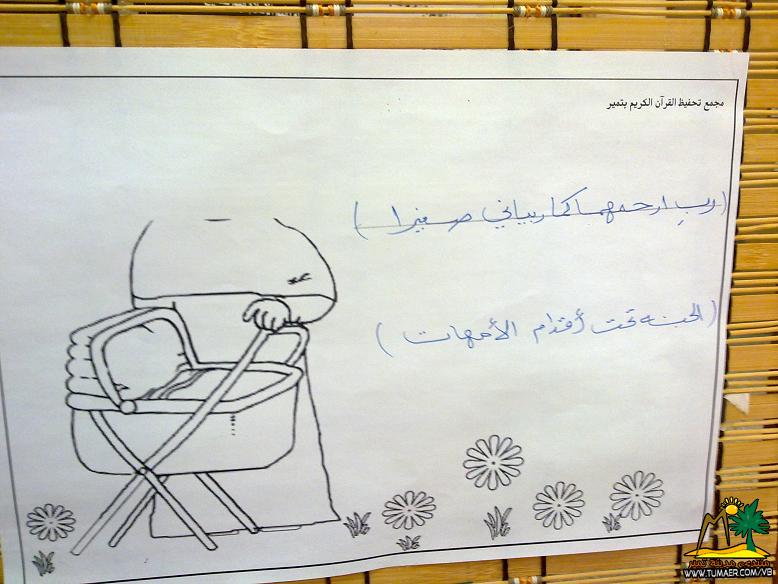 مجمع تحفيظ القرآن الكريم بتمير
(ربِ ارحمهما كما ربياني صغيرا)
(الجنه تحت أقدام الأمهات)
WWW.TUMAER.COM/VB